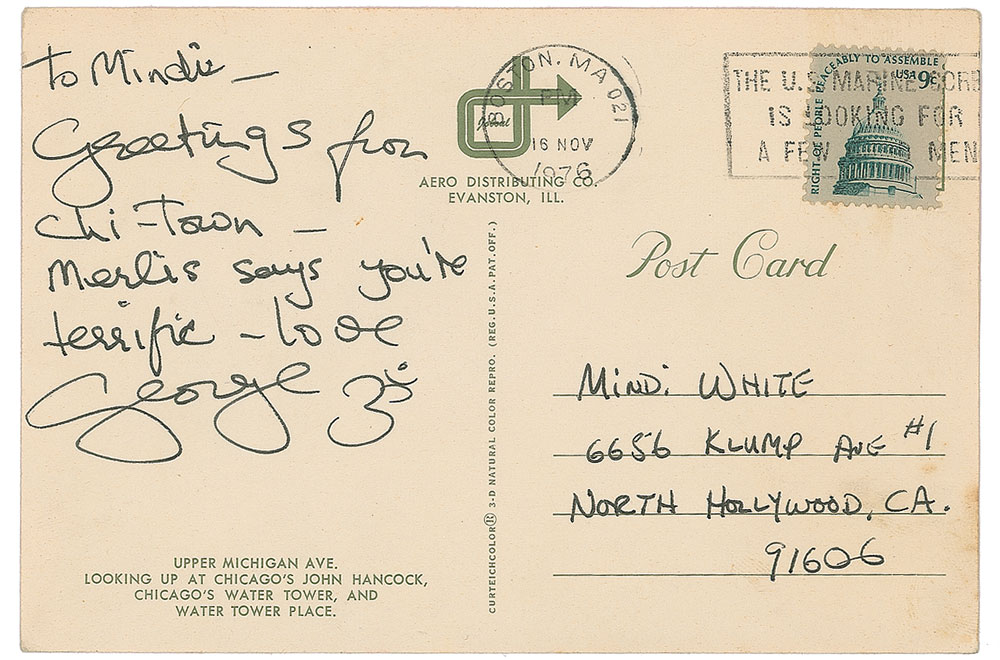 To Mindi –
Greetings from
Chi-Town –
Merlis says you're
terrific – love
George
UPPER MICHIGAN AVE.
LOOKING UP AT CHICAGO'S JOHN HANCOCK,
CHICAGO'S WATER TOWER, AND
WATER TOWER PLACE.
AERO DISTRIBUTING CO.
EVANSTON, ILL.
BOSTON, MA 021
PM
16 NOV
1976
CURTEICHCOLOR® 3-D NATURAL COLOR REPRO. (REG. U.S.A. PAT. OFF.)
THE U.S. MARINE CORP
IS LOOKING FOR
A FEW MEN
RIGHT OF PEOPLE PEACEABLY TO ASSEMBLE
USA 9c
Post Card
MINDI WHITE
6656 KLUMP AVE #1
NORTH HOLLYWOOD, CA.
91606